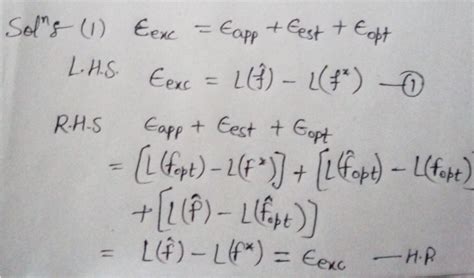 Solⁿ:- (1) ϵexc = ϵapp + ϵest + ϵopt
L.H.S. ϵexc = L(f̂) - L(f*) —①
R.H.S ϵapp + ϵest + ϵopt
= [L(fopt) - L(f*)] + [L(f̂opt) - L(fopt)
+ [L(f̂) - L(f̂opt)]
= L(f̂) - L(f*) = ϵexc —H.P